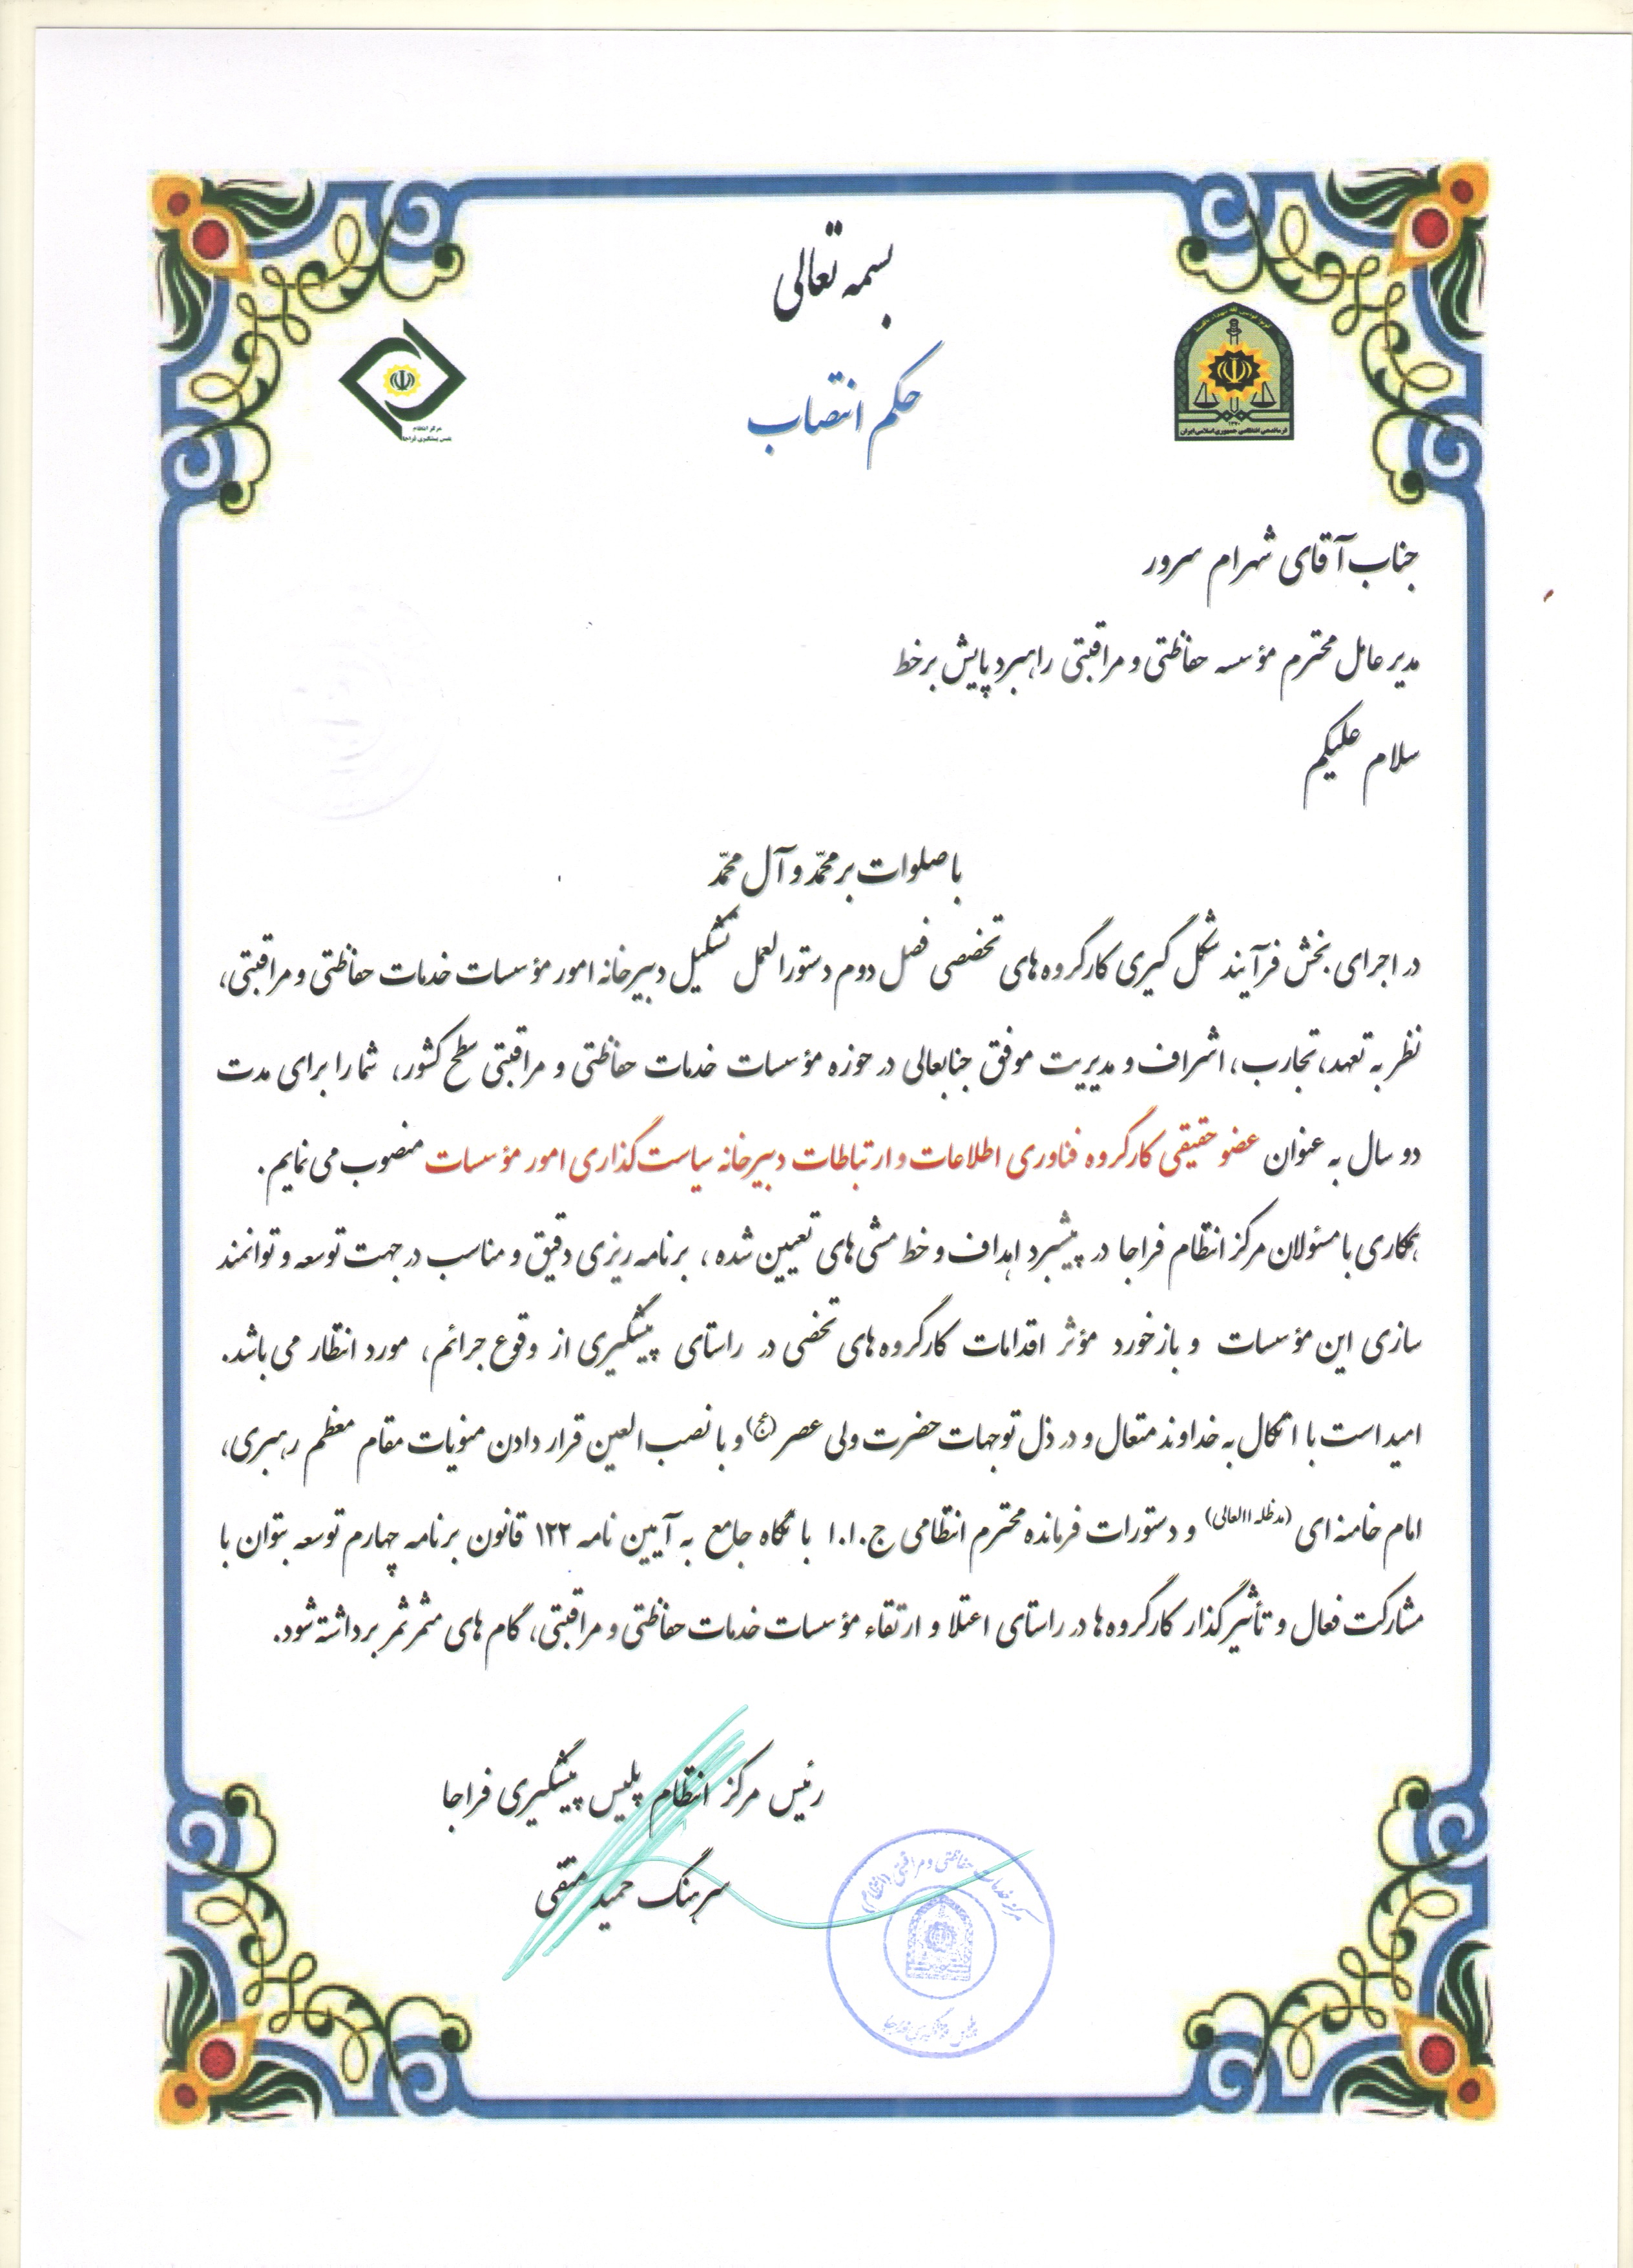 بسمه تعالی
حکم انتصاب
مرکز انتظام
پلیس پیشگیری فراجا
فرماندهی انتظامی جمهوری اسلامی ایران
جناب آقای شهرام سرور
مدیر عامل محترم مؤسسه حفاظتی و مراقبتی راهبرد پایش برخط
سلام علیکم
با صلوات بر محمّد و آل محمّد
در اجرای بخش فرآیند شکل گیری کارگروه های تخصصی فصل دوم دستورالعمل تشکیل دبیرخانه امور مؤسسات خدمات حفاظتی و مراقبتی،
نظر به تعهد، تجارب، اشراف و مدیریت موفق جنابعالی در حوزه مؤسسات خدمات حفاظتی و مراقبتی سطح کشور، شما را برای مدت
دو سال به عنوان عضو حقیقی کارگروه فناوری اطلاعات و ارتباطات دبیرخانه سیاست گذاری امور مؤسسات منصوب می نمایم.
همکاری با مسئولان مرکز انتظام فراجا در پیشبرد اهداف و خط مشی های تعیین شده، برنامه ریزی دقیق و مناسب در جهت توسعه و توانمند
سازی این مؤسسات و بازخورد مؤثر اقدامات کارگروه های تخصی در راستای پیشگیری از وقوع جرائم، مورد انتظار می باشد.
امید است با اتکال به خداوند متعال و در ذل توجهات حضرت ولی عصر (عج) و با نصب العین قرار دادن منویات مقام معظم رهبری،
امام خامنه ای (مدظله االعالی) و دستورات فرمانده محترم انتظامی ج.ا.ا با نگاه جامع به آیین نامه ۱۲۲ قانون برنامه چهارم توسعه بتوان با
مشارکت فعال و تأثیرگذار کارگروه ها در راستای اعتلا و ارتقاء مؤسسات خدمات حفاظتی و مراقبتی، گام های مثمر ثمر برداشته شود.
رئیس مرکز انتظام پلیس پیشگیری فراجا
سرهنگ حمید متقی
مرکز خدمات حفاظتی و مراقبتی (انتظام)
پلیس پیشگیری فراجا